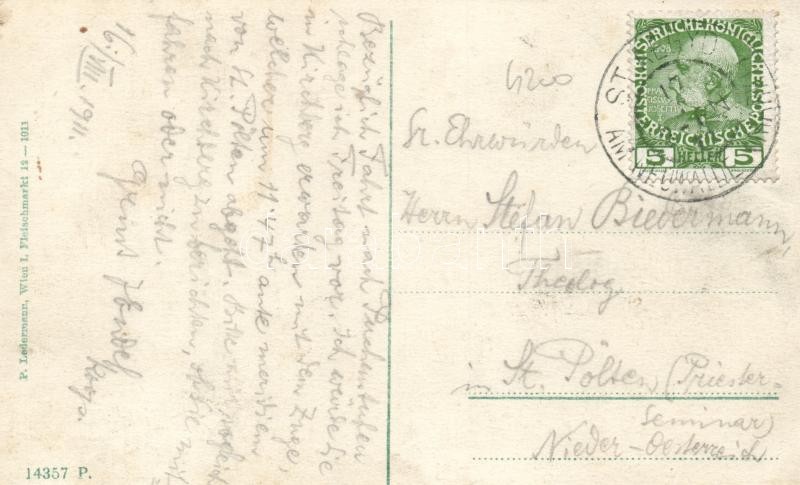 16./VII. 1911.
Bezüglich Fahrt nach Puchenstuben
schlage ich Freitag vor. Ich werde Sie
in Kirchberg erwarten mit dem Zuge,
welcher um 11.47h ante meridiem
von St. Pölten abgeht. Bitte mir
nach Kirchberg zu berichten, ob Sie mit-
fahren oder nicht.
Gruß
Sr. Ehrwürden
Herrn Stefan Biedermann,
Theolog
in St. Pölten (Priester-
Seminar)
Nieder-Oesterreich
KAISERLICHE KÖNIGLICHE
ÖSTERREICHISCHE POST
1908
5 HELLER 5
ST
AM NEUWALDE
P. Ledermann, Wien I. Fleischmarkt 12 — 1911
14357 P.